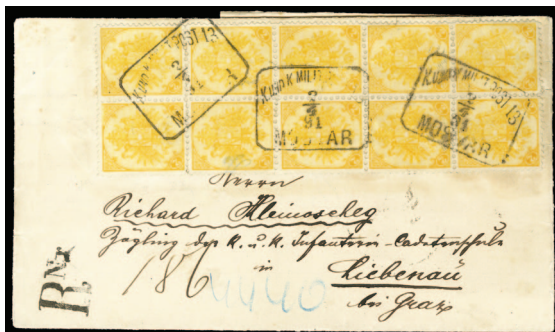 K. und K. MILIT. POST 13
M R
K. und K MILIT
91
MOSTAR
K. und K MILIT. POST 13
91
MOSTAR
Herrn
Richard Kleinoscheg
Zögling der K. u. K. Infanterie-Cadetenschule
in
Liebenau
bei Graz
R No.
186
4440